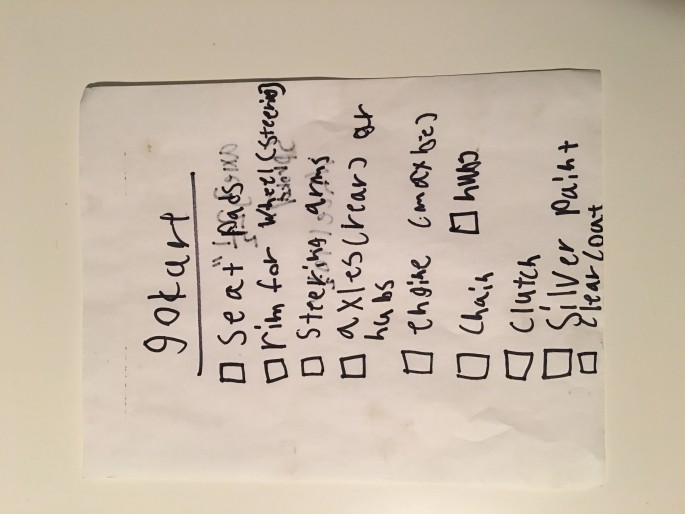 gokart
seat pads
rim for wheel (steering)
steering arms
axles (rear) or
hubs
engine (maxbiz)
chain
hubs
clutch
Silver paint
clear coat